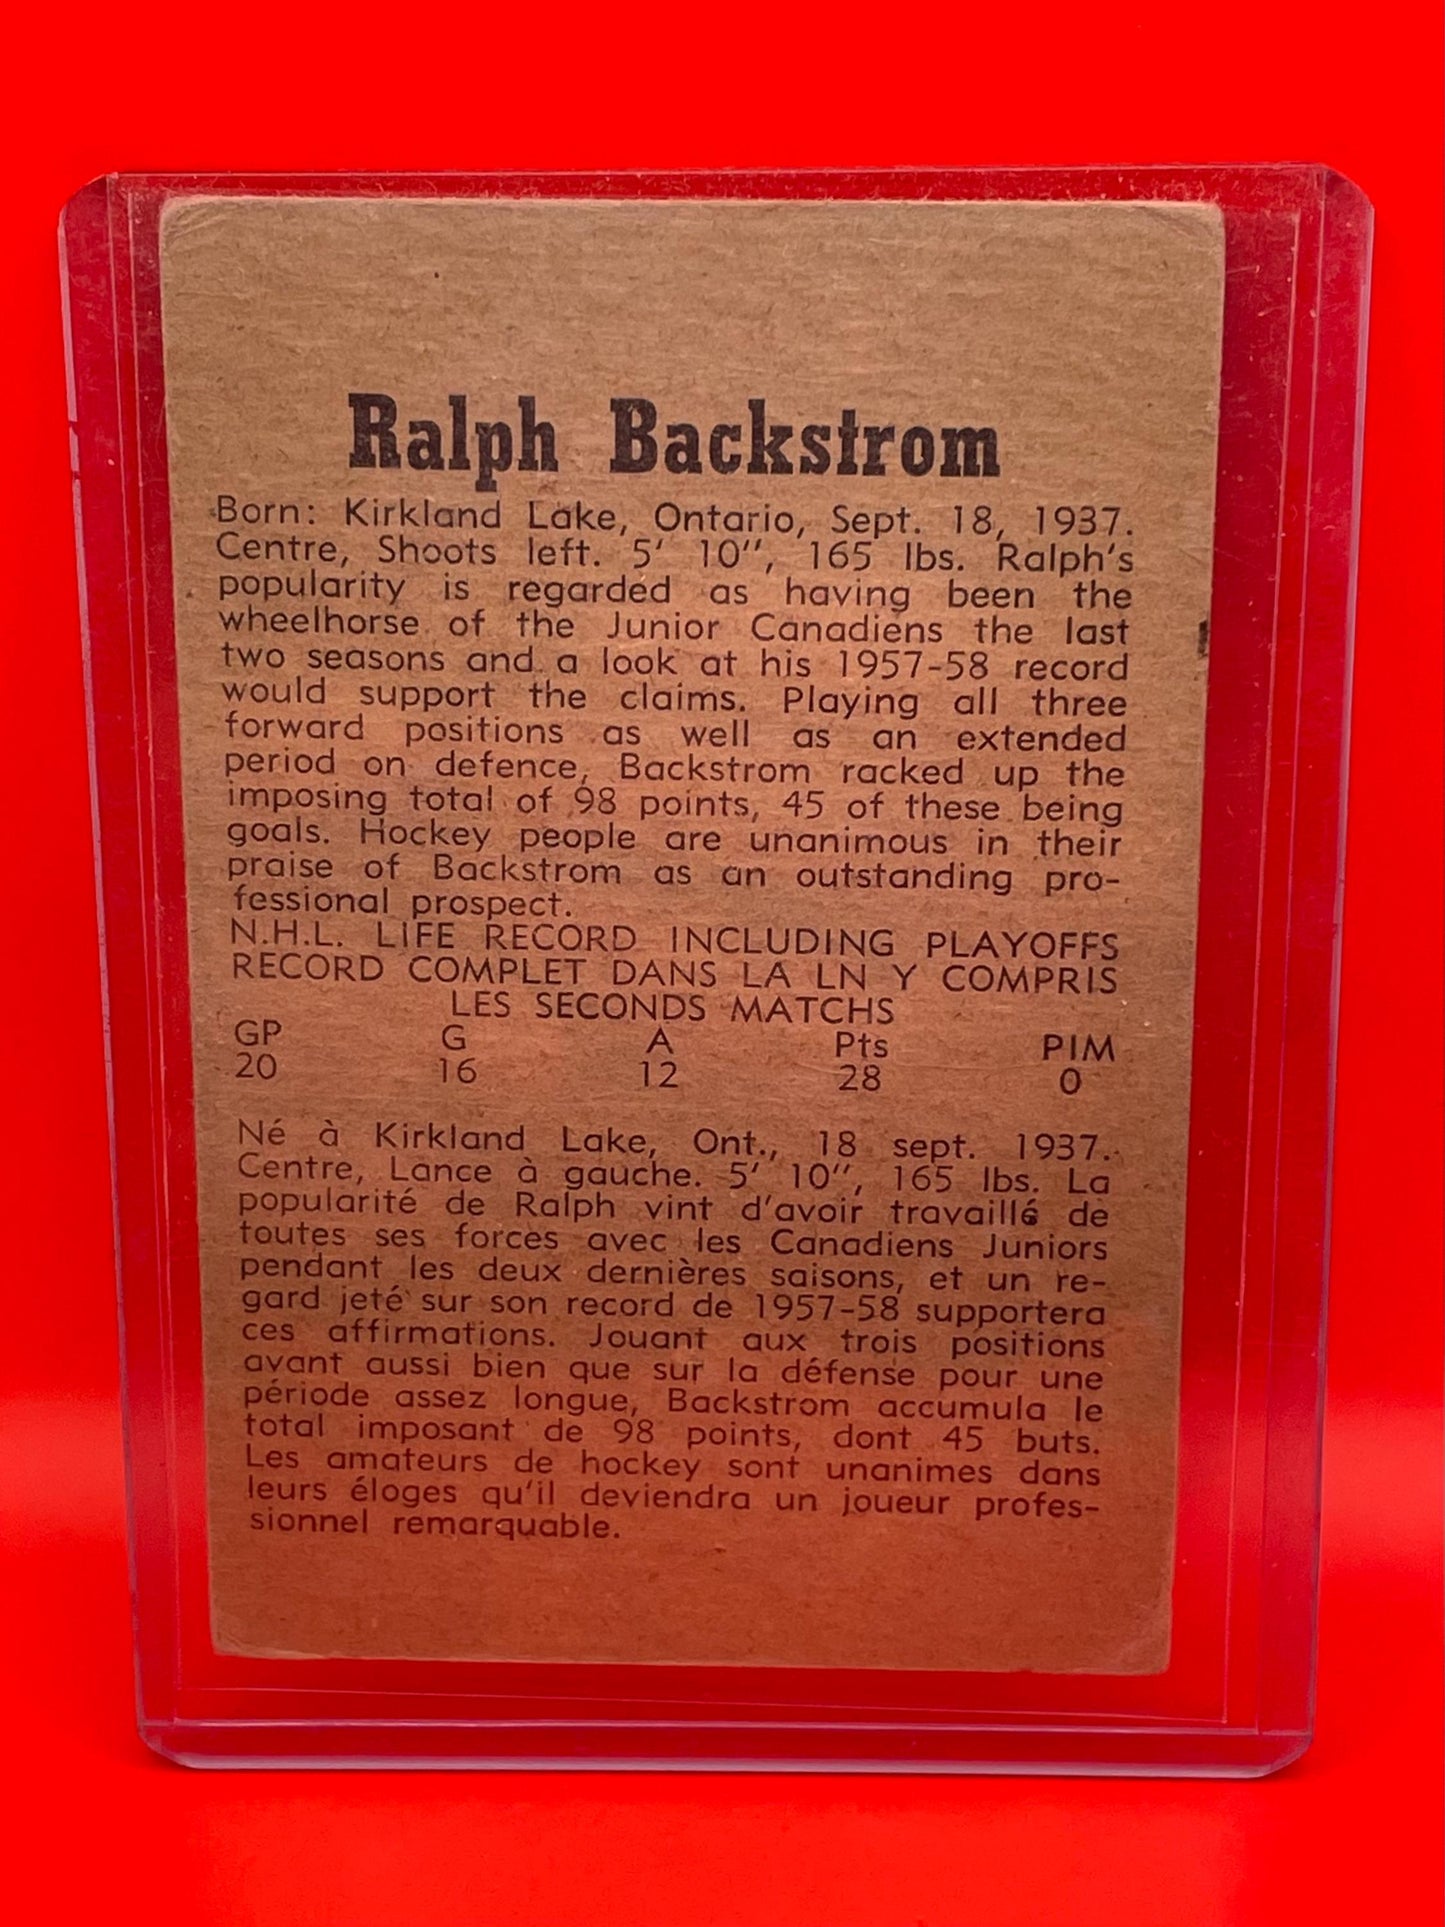 Ralph Backstrom
Born: Kirkland Lake, Ontario, Sept. 18, 1937.
Centre, Shoots left. 5' 10", 165 lbs. Ralph's
popularity is regarded as having been the
wheelhorse of the Junior Canadiens the last
two seasons and a look at his 1957-58 record
would support the claims. Playing all three
forward positions as well as an extended
period on defence, Backstrom racked up the
imposing total of 98 points, 45 of these being
goals. Hockey people are unanimous in their
praise of Backstrom as an outstanding pro-
fessional prospect.
N.H.L. LIFE RECORD INCLUDING PLAYOFFS
RECORD COMPLET DANS LA LN Y COMPRIS
LES SECONDS MATCHS
GP G A Pts PIM
20 16 12 28 0
Né à Kirkland Lake, Ont., 18 sept. 1937.
Centre, Lance à gauche. 5' 10", 165 lbs. La
popularité de Ralph vint d'avoir travaillé de
toutes ses forces avec les Canadiens Juniors
pendant les deux dernières saisons, et un re-
gard jeté sur son record de 1957-58 supportera
ces affirmations. Jouant aux trois positions
avant aussi bien que sur la défense pour une
période assez longue, Backstrom accumula le
total imposant de 98 points, dont 45 buts.
Les amateurs de hockey sont unanimes dans
leurs éloges qu'il deviendra un joueur profes-
sionnel remarquable.